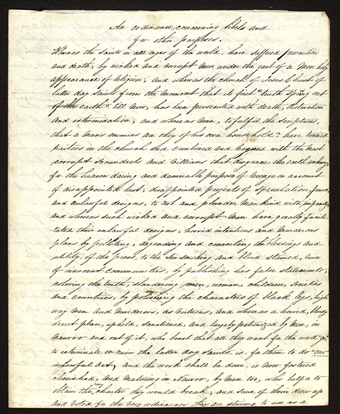 An ordinance, concerning libels and
for other purposes.
Whereas the saints in all ages of the world, have suffered persecution
and death, by wicked and corrupt men under the garb of a more holy
appearance of religion; and whereas the church of Jesus Christ of
latter day saints from the moment that its first "truth sprang out
of the earth" till now, has been persecuted with death, destruction
and extermination; and whereas men, to fulfil the scriptures,
that a mans enemies are they of his own household, have turned
traitors in the church and combined and leagued with the most
corrupt scoundrels and villians that disgrace the earth unhung
for the heaven daring and damnable purpose of revenge on account
of disappointed lust, disappointed projects of speculation, fraud,
and unlawful designs, to rob and plunder mankind with impunity
and whereas such wicked and corrupt men have greatly facili-
tated their unlawful designs, horrid intentions and murderous
plans by polluting, degrading and converting the blessings and
utility, of the press, to the sin-smoking and blood stained, ruin
of innocent communities, by publishing lies, false statements,
coloring the truth, slandering men, women, children, societies
and countries, by polishing the characters of black legs, high-
way men and murderers, as virtuous, and whereas a horrid, bloody
secret plan, upheld, sanctioned, and largely patronized by men, in
Nauvoo and out of it, who boast that all they want for the word go,
to exterminate or ruin the latter day saints, is for them to do "one
unlawful act," and the work shall be done, is now fostered
cherished, and maturing in Nauvoo, by men, too, who helped to
obtain the charter they would break, and some of them drew up
and voted for the very ordinances they are striving to use as a